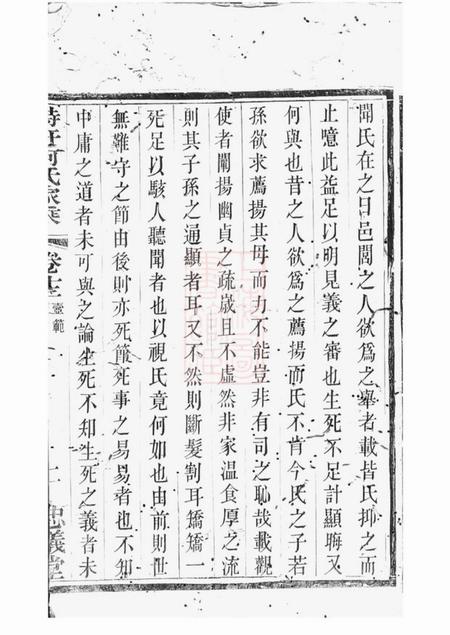 聞氏在之日邑閭之人欲爲之舉者載皆氏抑之而
止噫此益足以明見義之審也生死不足計顯晦又
何與也昔之人欲爲之薦揚而氏不肯今氏之子若
孫欲求薦揚其母而力不能豈非有司之恥哉載觀
使者闡揚幽貞之疏歲且不虛然非家温食厚之流
則其子孫之通顯者耳又不然則斷髮割耳矯矯一
死足以駭人聽聞者也以視氏竟何如也由前則世
無難守之節由後則亦死節死事之易易者也不知
中庸之道者未可與之論生死不知生死之義者未
何氏家乘
卷十三
壼範
忠義堂